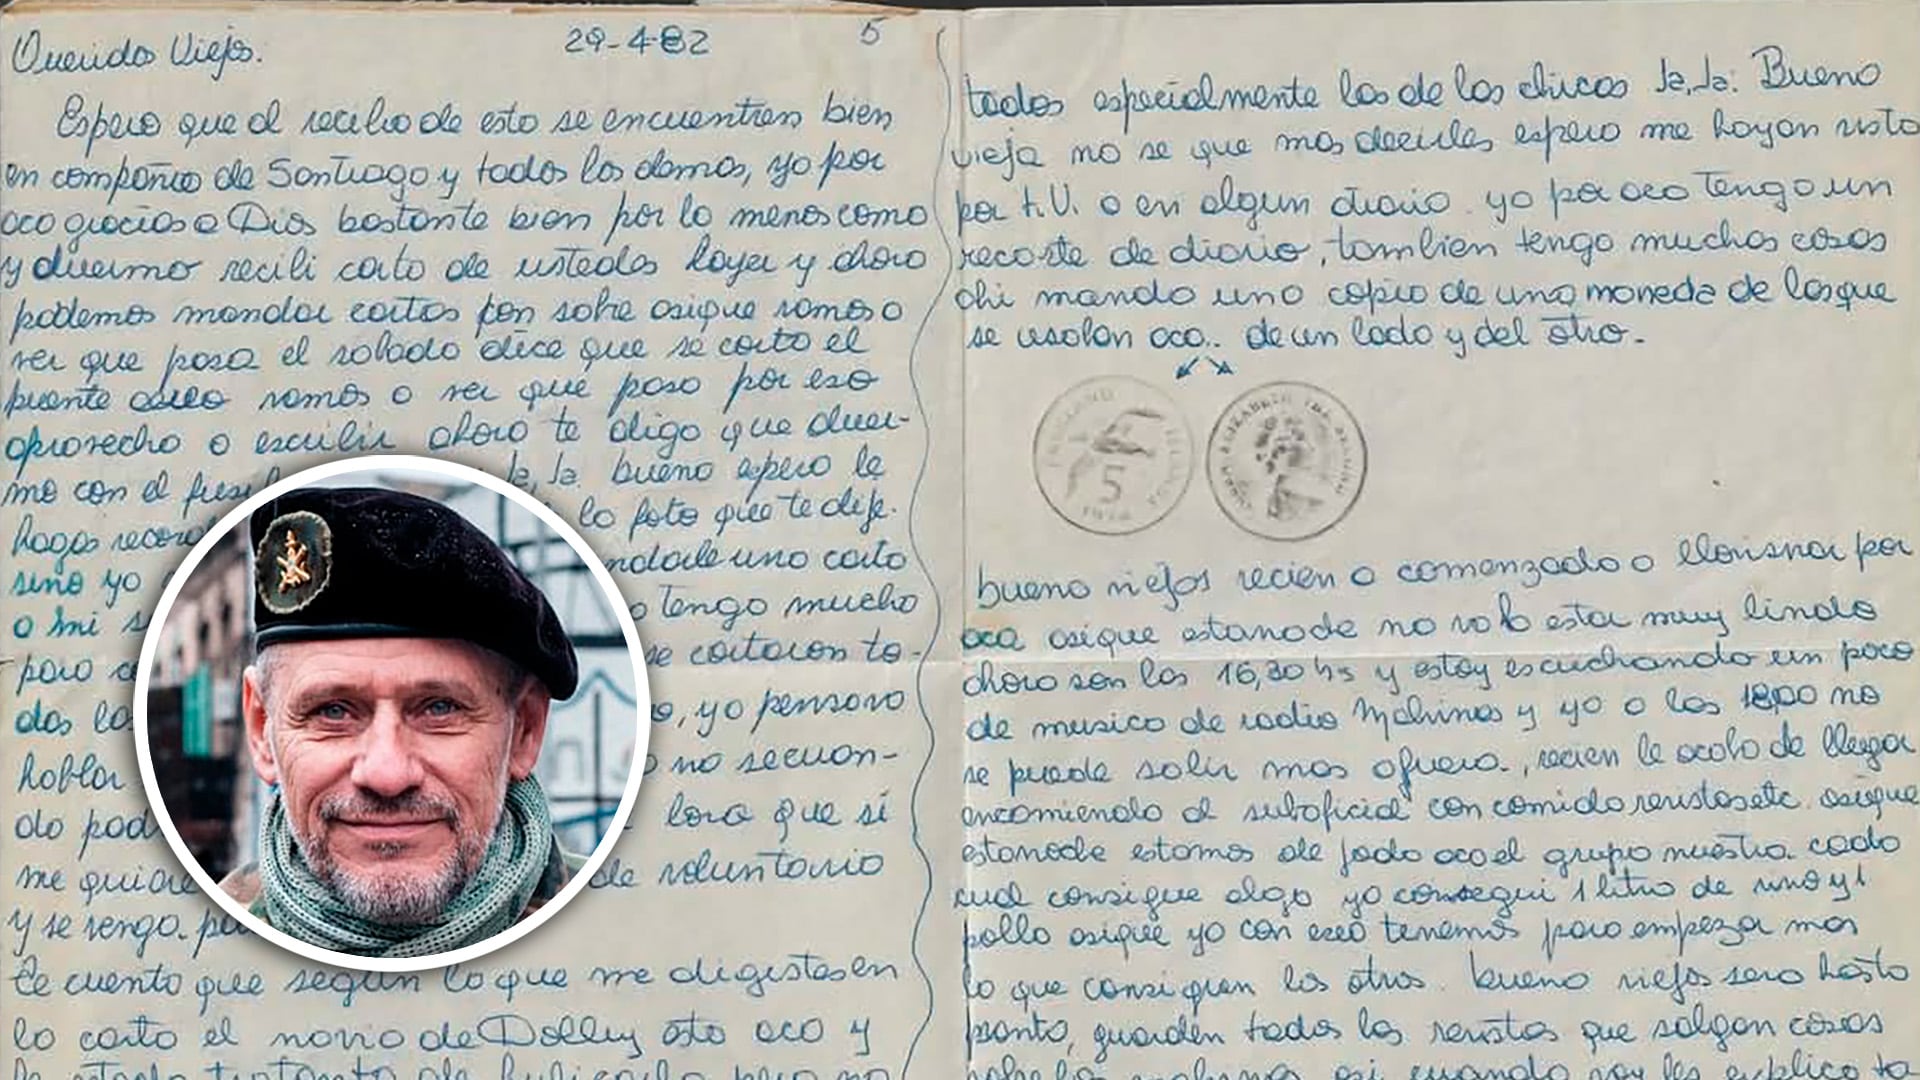 Queridos Viejos.
29-4-82
5
Espero que al recibo de esto se encuentren bien
en compañia de Santiago y todos los demas, yo por
aca gracias a Dios bastante bien por lo menos como
y duermo recibi carta de ustedes hayer y ahora
podemos mandar cartas con sobre asique vamos a
ver que pasa el sabado dice que se corto el
puente aereo vamos a ver que pasa por eso
aprovecho a escribir ahora te digo que duer-
mo con el fusil Ja, Ja. bueno espero le
hagas recor lo foto que te dije.
sino yo ndole una carta
a mi s o tengo mucho
para c se cortaron to-
das la o, yo pensava
hablar o no se cuan-
do pod lora que si
me quiore de voluntario
y se venga. pa
te cuento que según lo que me digistes en
la carta el novio de Dolly esta aca y
todos especialmente los de los chicos Ja, Ja. Bueno
vieja no se que mas decirles espero me hayan visto
por t.V. o en algun diario. yo por aca tengo un
recorte de diario, tambien tengo muchas cosas
ahi mando una copia de una moneda de las que
se usaban aca.. de un lado y del otro.
5
1974
bueno viejos recien a comenzado a lloviznar por
aca asique esta noche no va a estar muy lindo
ahora son las 16,30 hs y estoy escuchando un poco
de musica de radio Malvinas y yo a las 18,00 no
se puede salir mas afuera., recien le acaba de llegar
encomienda al suboficial con comida revistas etc. asique
esta noche estamos de joda aca el grupo nuestro. cada
cual consigue algo yo consegui 1 litro de vino y 1
pollo asique yo con eso tenemos para empezar mas
lo que consiguen los otros. bueno viejos sera hasta
pronto, guarden todas las revistas que salgan cosas